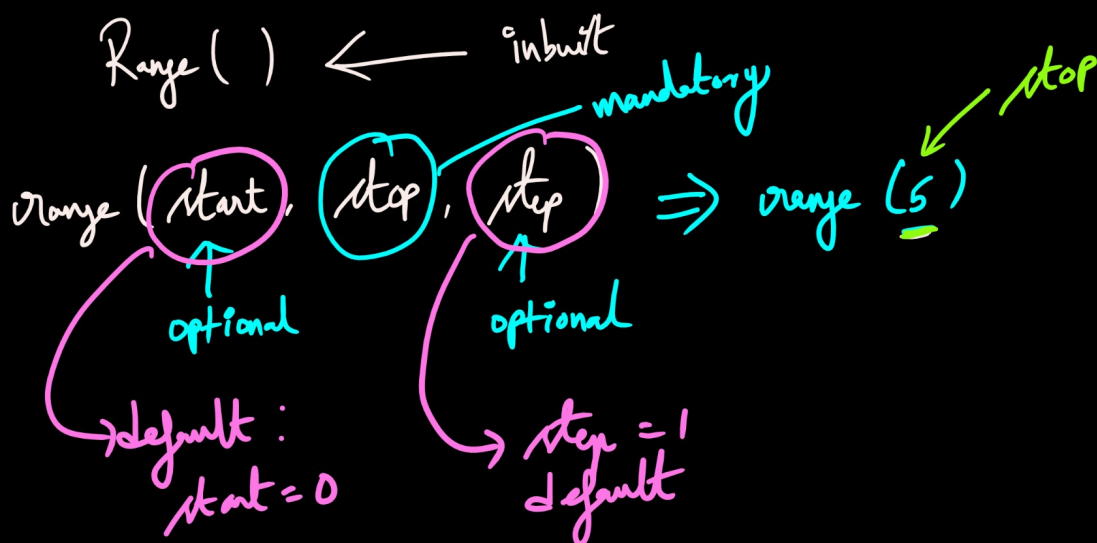 Range( ) ← inbuilt
stop
mandatory
range (start, stop, step) ⇒ range (5)
optional optional
default : step = 1
start = 0 default